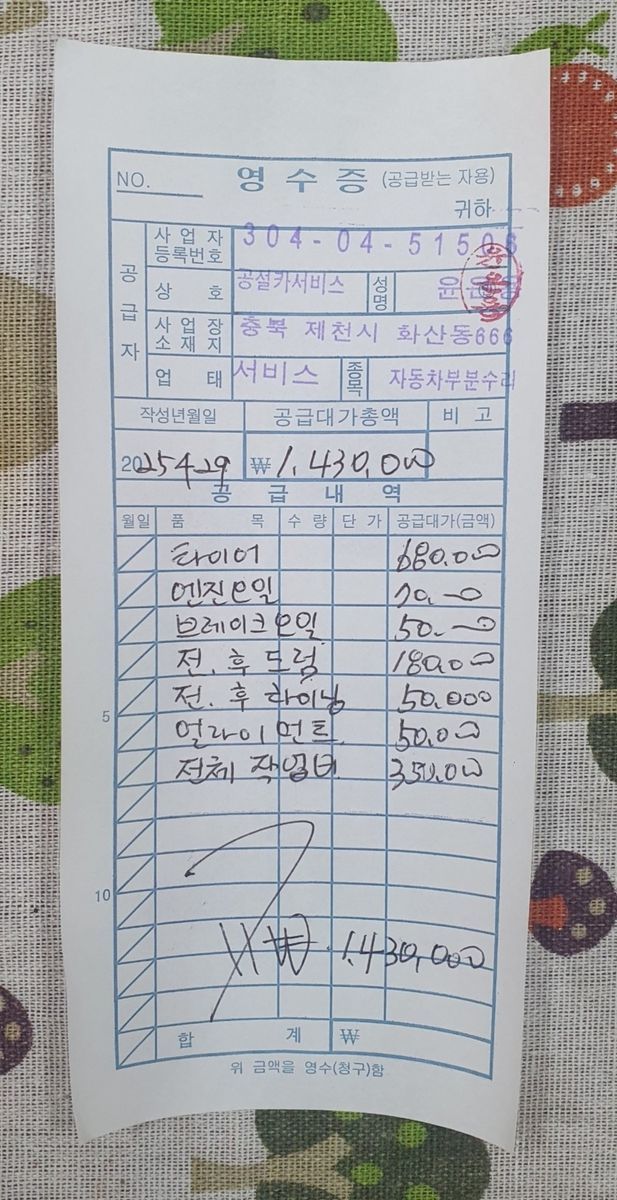 NO. 영 수 증 (공급받는 자용)
귀하
공급자
사 업 자 등록번호 304-04-51506
상 호 공설카서비스 성명 윤
사 업 장 소 재 지 충북 제천시 화산동666
업 태 서비스 종목 자동차부분수리
작성년월일 공급대가총액 비 고
2025 4 29 ₩ 1,430,000
공 급 내 역
월일 품 목 수 량 단 가 공급대가(금액)
타이어 680.000
엔진오일
브레이크 오일 50.
전. 후 드럼 180.000
전. 후 라이닝 50.000
5
얼라이먼트 50.000
전체 작업비 350.000
10
₩ 1,430,000
합 계 ₩
위 금액을 영수(청구)함